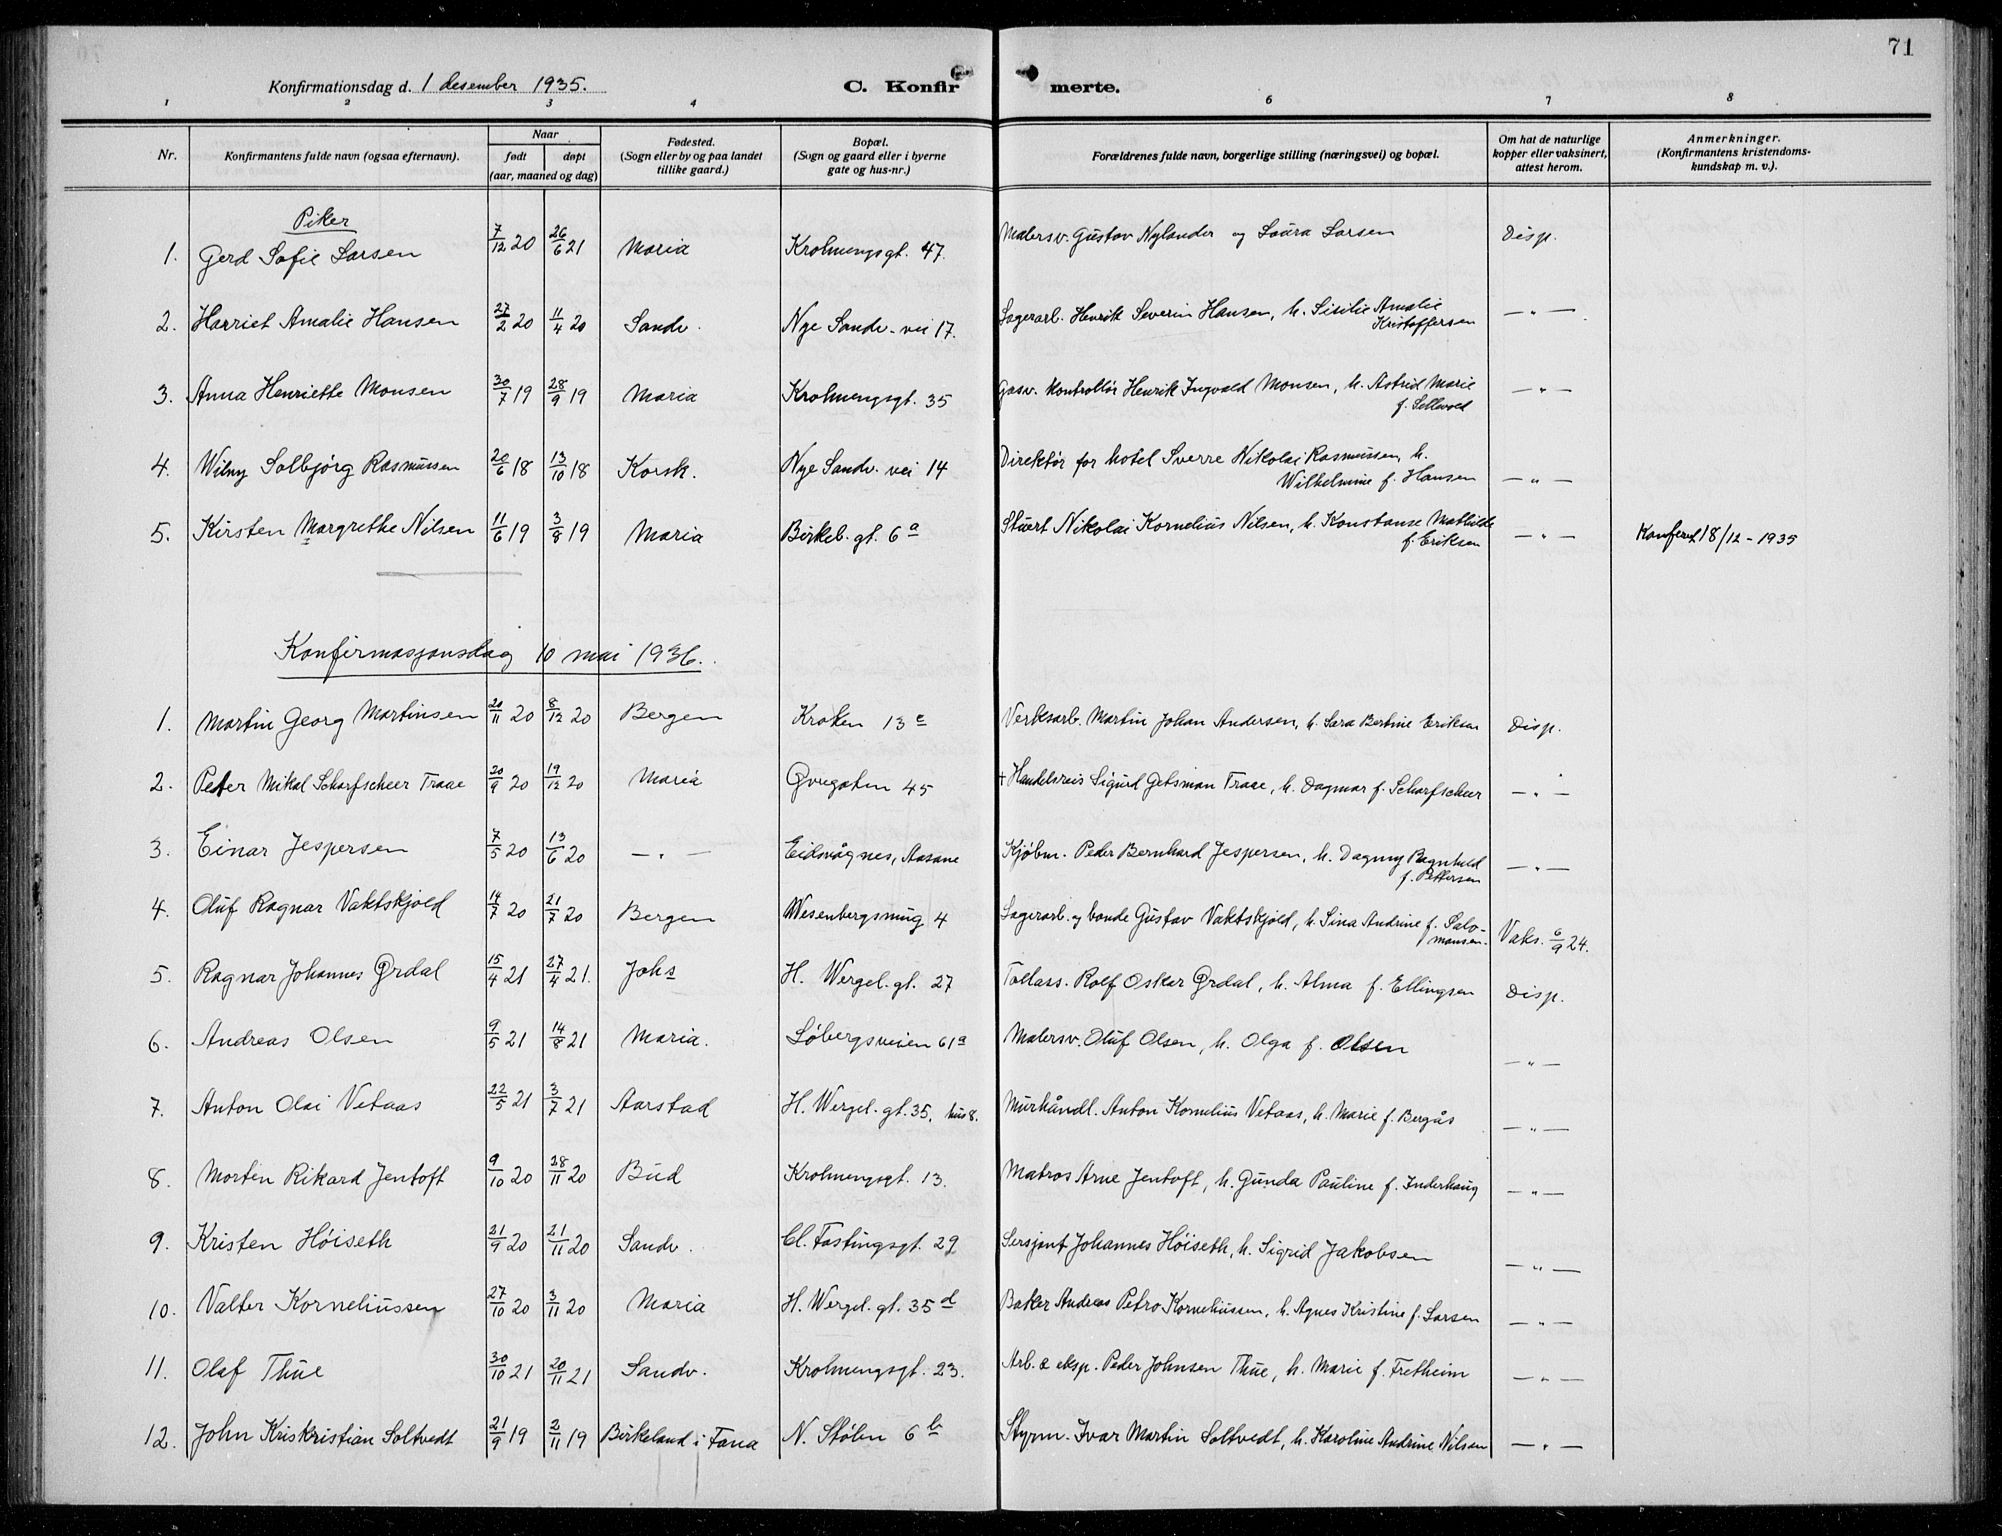 71
Konfirmationsdag d. 1 desember 1935.
C. Konfirmerte.
1 2 3 4 6 7 8
Nr.
Konfirmantens fulde navn (ogsaa efternavn).
Naar
født døpt
(aar, maaned og dag)
Fødested.
(Sogn eller by og paa landet
tillike gaard.)
Bopæl.
(Sogn og gaard eller i byerne
gate og hus-nr.)
Forældrenes fulde navn, borgerlige stilling (næringsvei) og bopæl.
Om hat de naturlige
kopper eller vaksinert,
attest herom.
Anmerkninger.
(Konfirmantens kristendoms-
kundskap m. v.).
Piker
1. Gerd Sofie Larsen 7/12 20 26/6 21 Maria Krohnengsgt. 47. Malersv. Gustav Nylander og Laura Larsen Disp.
2. Harriet Amalie Hansen 27/2 20 11/4 20 Sandv. Nye Sandv. vei 17. Lagerarb. Henrik Severin Hansen, h. Sisilie Amalie
Kristoffersen — " —
3. Anna Henriette Monsen 30/7 19 28/9 19 Maria Krohnengsgt. 35 Gasv. kontrollør Henrik Ingvald Monsen, h. Astrid Marie
f. Sellevold — " —
4. Wilny Solbjørg Rasmussen 20/6 18 13/10 18 Korsk. Nye Sandv. vei 14 Direktør for hotel Sverre Nikolai Rasmussen, h.
Wilhelmine f. Hansen — " —
5. Kirsten Margrethe Nilsen 11/6 19 3/8 19 Maria Birkeb. gt. 6a Stuert Nikolai Kornelius Nilsen, h. Konstanse Mathilde
f. Eriksen — " — Konferert 18/12 - 1935
Konfirmasjonsdag 10 mai 1936.
1. Martin Georg Martinsen 20/11 20 8/12 20 Bergen Kroken 13c Verksarb. Martin Johan Andersen, h. Sara Bertine Eriksen Disp.
2. Peter Mikal Scharfscheer Traae 20/9 20 19/12 20 Maria Øvregaten 45 + Handelsreis Sigurd Getsman Traae, h. Dagmar f. Scharfscheer — " —
3. Einar Jespersen 7/5 20 13/6 20 — " — Eidsvågnes, Aasane Kjøbm. Peder Bernhard Jespersen, h. Dagny Ragnhild
f. Pettersen — " —
4. Oluf Ragnar Vaktskjold 14/7 20 21/7 20 Bergen Wesenbergsmug 4 Lagerarb. og bonde Gustav Vaktskjold, h. Sina Andrine f. Salo-
monsen. Vaks. 6/9 24.
5. Ragnar Johannes Ørdal 15/4 21 27/4 21. Johs H. Wergel. gt. 27 Tollass. Rolf Oskar Ørdal, h. Alma f. Ellingsen Disp.
6. Andreas Olsen 9/5 21 14/8 21 Maria. Løbergsveien 61a Malersv. Oluf Olsen, h. Olga f. Olsen — " —
7. Anton Olai Vetaas 22/5 21 3/7 21 Aarstad H. Wergel. gt. 35, hus 8. Murhåndl. Anton Kornelius Vetaas, h. Marie f. Bergås — " —
8. Morten Rikard Jentoft 9/10 20 28/11 20 Bud Krohnengsgt. 13. Matros Arne Jentoft, h. Gunda Pauline f. Inderhaug — " —
9. Kristen Høiseth 21/9 20 21/11 20 Sandv. Cl. Fastingsgt. 29 Sersjant Johannes Høiseth, h. Sigrid Jakobsen — " —
10. Valter Korneliussen 27/10 20 3/11 20 Maria H. Wergel. gt. 35d Baker Andreas Petro Korneliussen, h. Agnes Kristine f. Larsen — " —
11. Olaf Thue 30/10 21 20/11 21 Sandv. Krohnengsgt. 23. Arb. & eksp. Peder Johnsen Thue, h. Marie f. Fretheim — " —
12. John Kriskristian Soltvedt 21/9 19 2/11 19 Birkeland i Fana N. Stølen 6b Styrm. Ivar Martin Soltvedt, h. Karoline Andrine Nilsen — " —